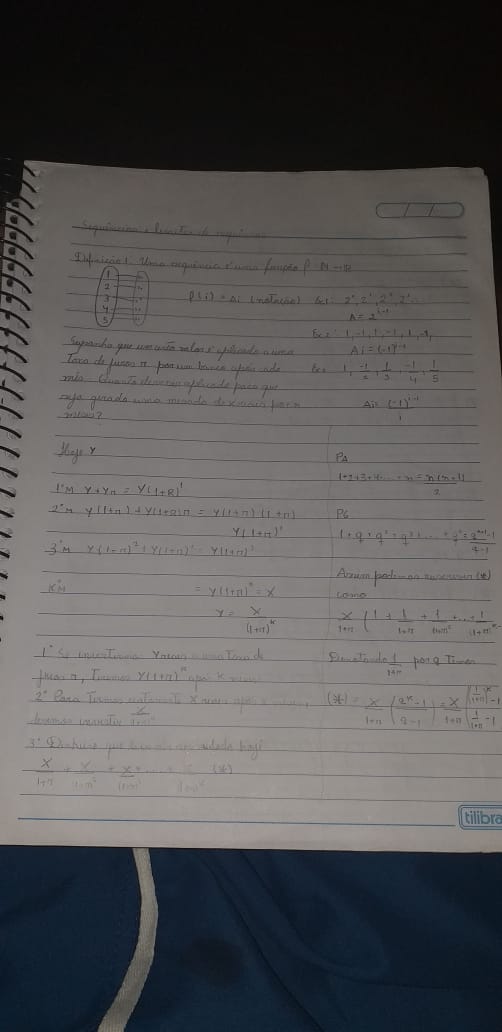 Sequências e limites de sequências
Definição 1: Uma sequência é uma função f: N → R
1
2
3
4
5
f(i) = Ai (notação)
Ex1: 2⁰, 2¹, 2², 2³...
A = 2^(i-1)
Ex2: 1, -1, 1, -1, 1, -1,
Ai = (-1)^(i-1)
1, -1/2, 1/3, -1/4, 1/5
Ai = (-1)^(i-1)/i
Suponha que um valor é aplicado a uma
Taxa de juros r por um banco após cada
mês. Quanto deve ser aplicado para que
seja gerado uma de x reais por
meses?
Hoje Y
1º M Y + Yr = Y(1+R)¹
2º M Y(1+r) + Y(1+R)r = Y(1+r)(1+r)
Y(1+r)²
3º M Y(1+r)² + Y(1+r)² = Y(1+r)³
= Y(1+r)^k = X
Y = X/(1+r)^k
1º Se investirmos Y reais a uma Taxa de
juros r, Teremos Y(1+r)^k após k meses
2º Para Termos X reais após
devemos investir
3º
X/(1+r) + X/(1+r)² + X/(1+r)³ + ... + (*)
PA
1+2+3+4+ ... + n = n(n+1)/2
PG
1 + q + q² + q³ + ... + qⁿ = (q^(n+1) - 1)/(q - 1)
Assim podemos reescrever (*)
como
X/(1+r) (1 + 1/(1+r) + 1/(1+r)² + ... + 1/(1+r)^(k-
Denotando 1/(1+r) por q Temos
(*) = X/(1+r) ((q^k - 1)/(q - 1)) = X/(1+r)
tilibra